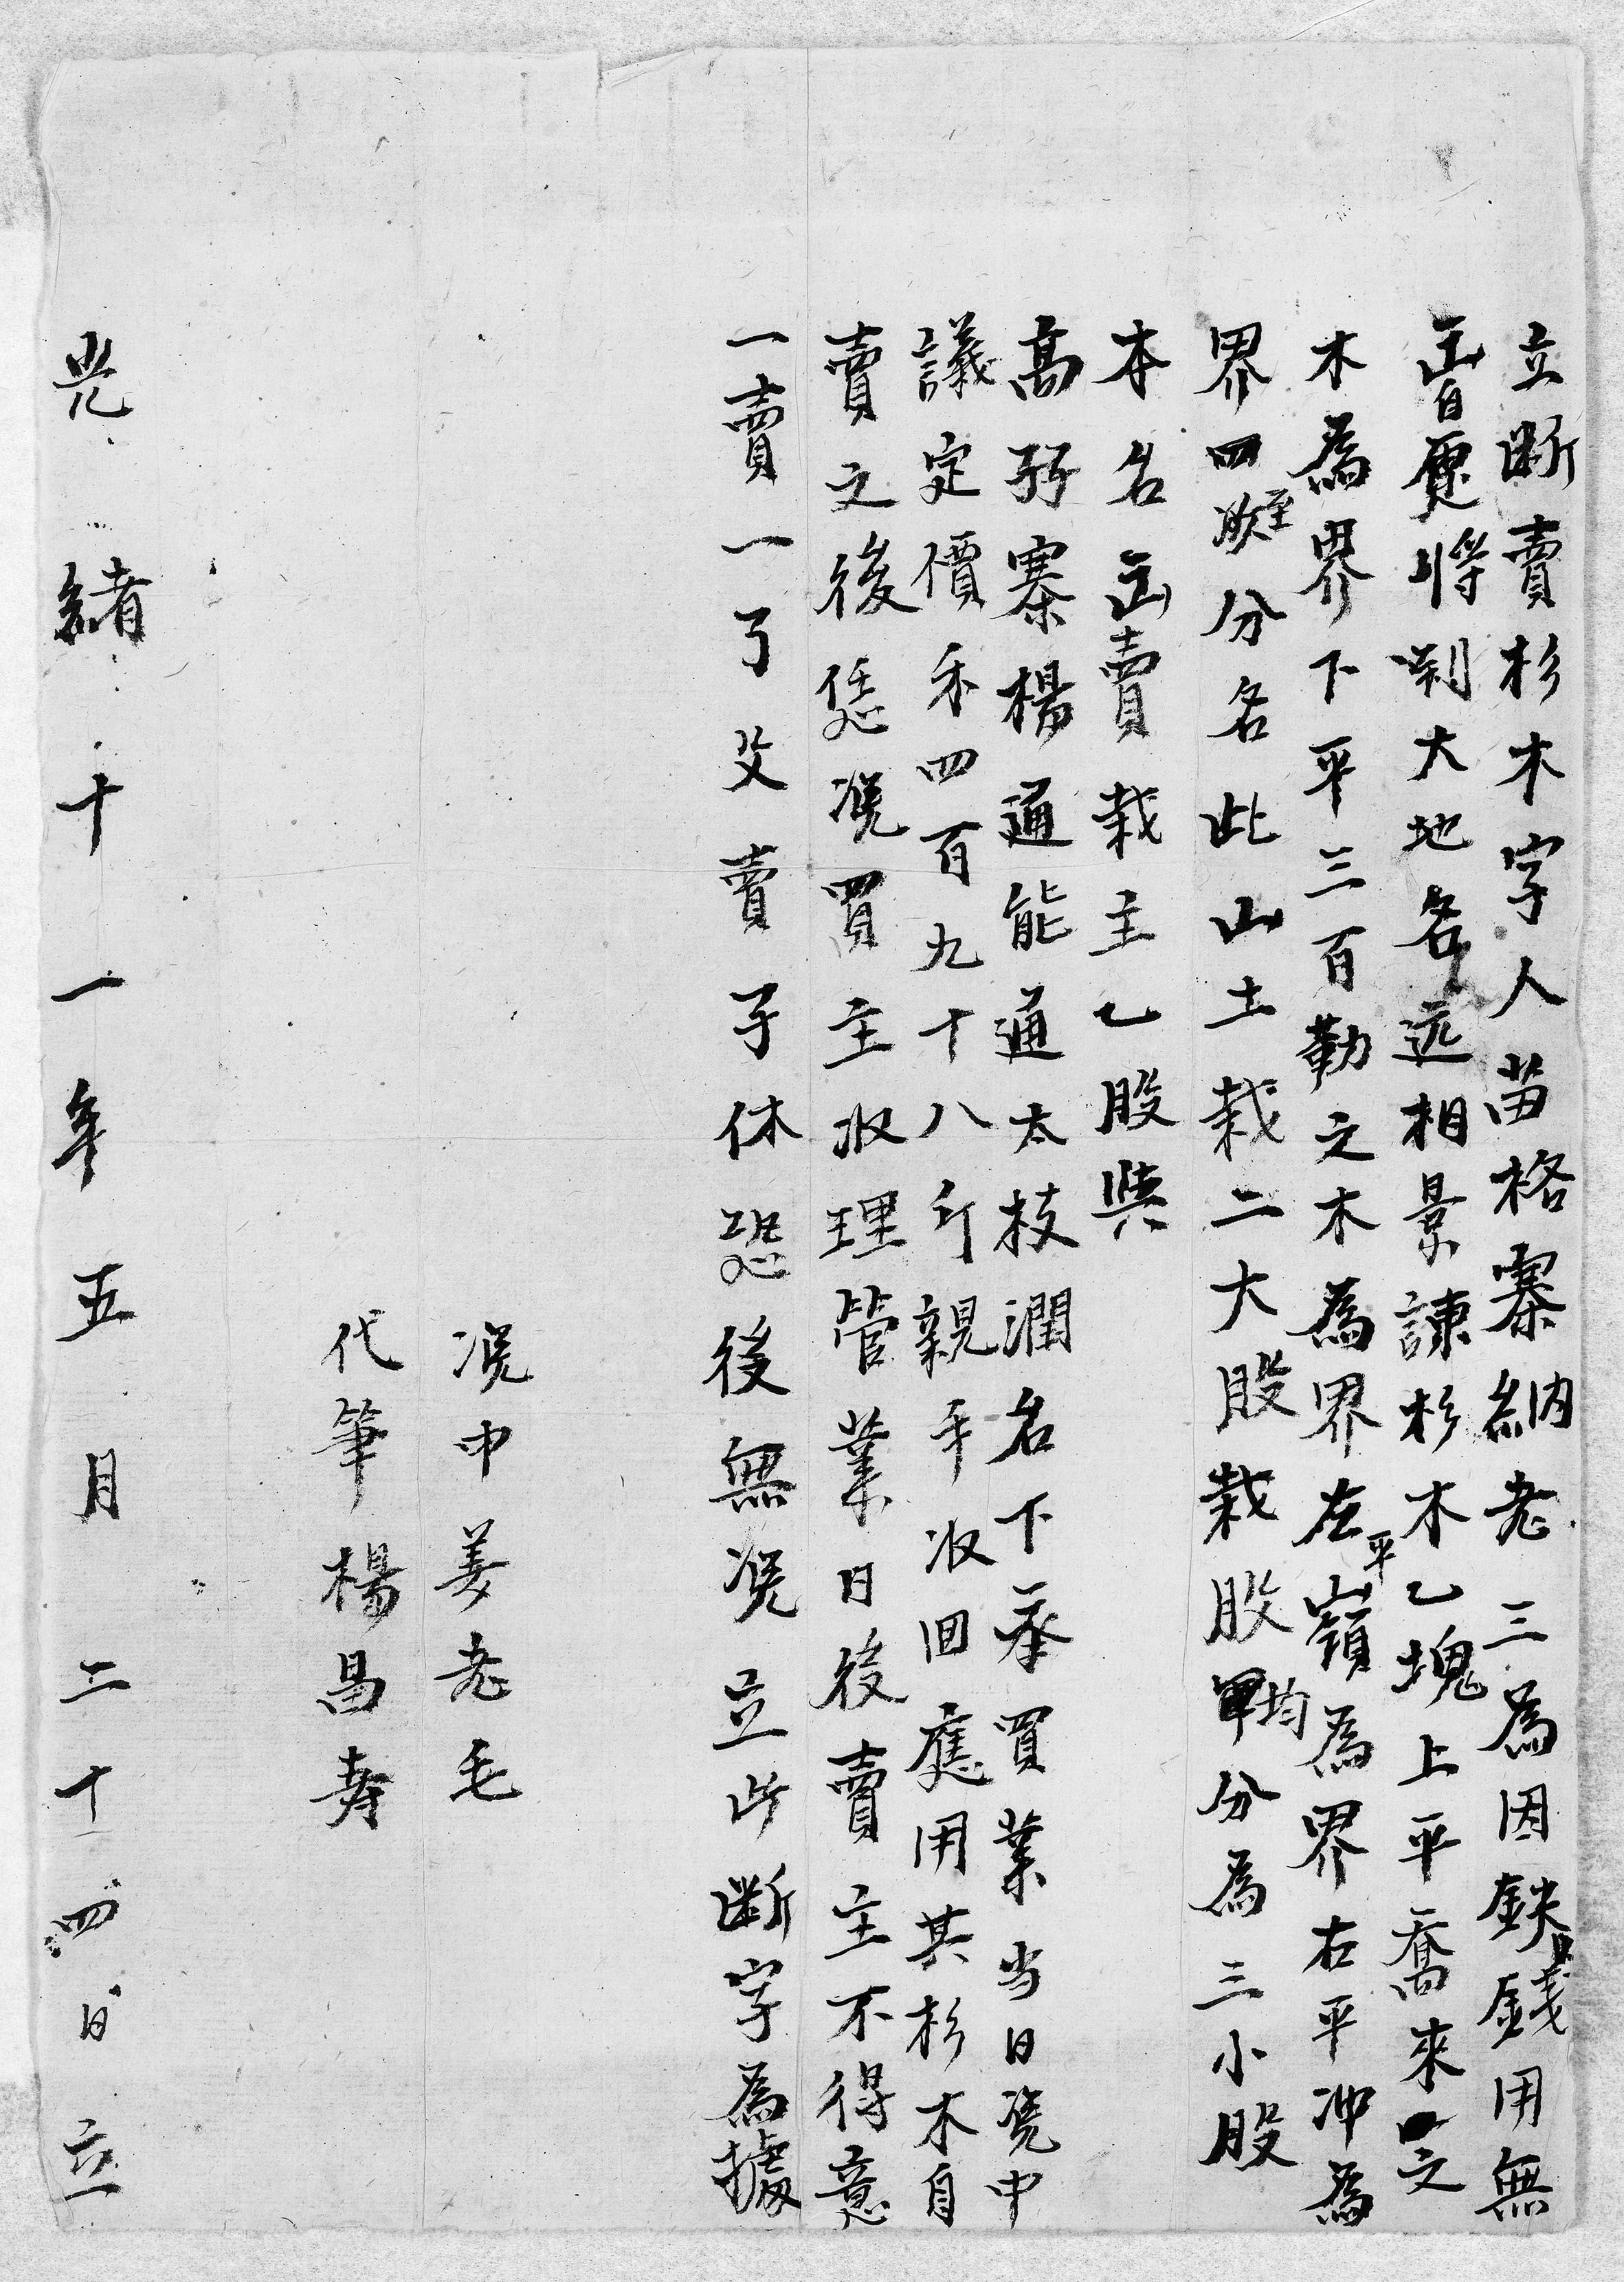 立断賣杉木字人苗格寨納老三為因缺錢用無
出自愿將到大地名远相景諌杉木乙塊上平喬來之
木為界下平三百勒之木為界左平嶺為界右平冲為
界四至分名此山土栽二大股栽股均分為三小股
本名出賣栽主乙股與
高孖寨楊通能通太枝潤名下承買業当日凴中
議定價禾四百九十八斤親手收回應用其杉木自
賣之後恁凴買主收理管業日後賣主不得意
一賣一了父賣子休恐後無凴立此断字為據
凴中姜老毛
代筆楊昌寿
光緒十一年五月二十四日立